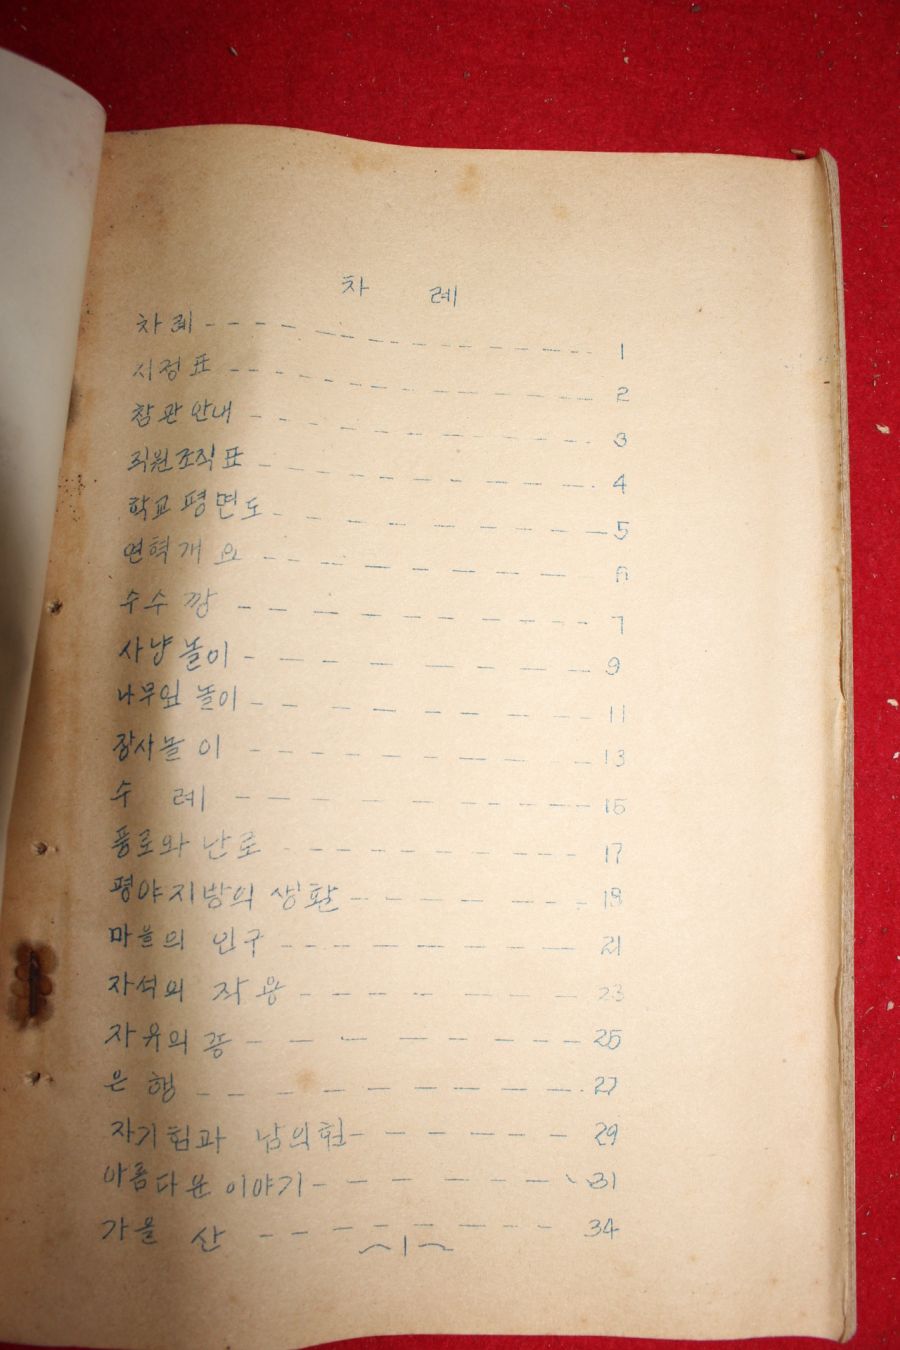 차 례
차례 1
시정표 2
참관안내 3
직원조직표 4
학교 평면도 5
연혁개요 6
수수깡 7
사냥놀이 9
나무잎 놀이 11
장사놀이 13
수 레 15
풍로와 난로 17
평야지방의 생활 19
마을의 인구 21
자석의 작용 23
자유의 종 25
은 행 27
자기험과 남의험 29
아름다운 이야기 31
가을 산 34
~1~